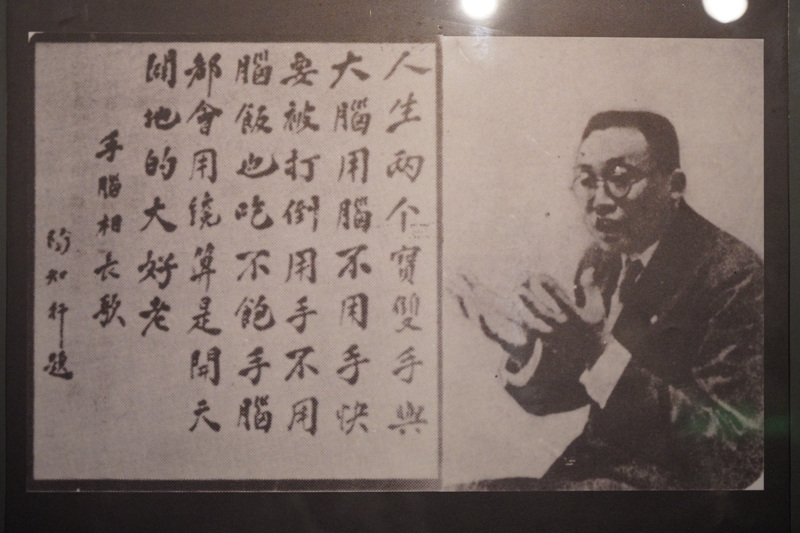 人生兩个寶雙手與
大腦用腦不用手快
要被打倒用手不用
腦飯也吃不飽手腦
都會用纔算是開天
闢地的大好老
手腦相長歌
陶知行題